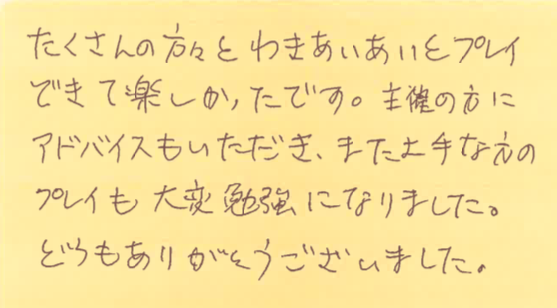 たくさんの方々とわきあいあいとプレイ
できて楽しかったです。主催の方に
アドバイスもいただき、また上手な方の
プレイも大変勉強になりました。
どうもありがとうございました。